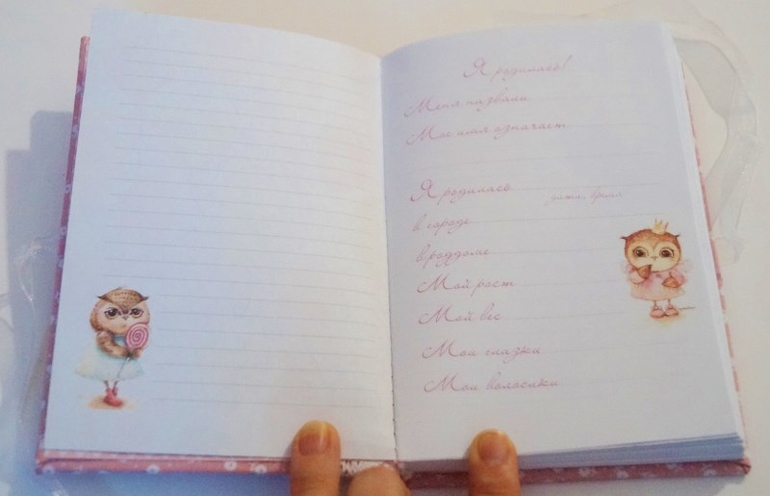 Я родилась!
Меня назвали
Мое имя означает
Я родилась
дата, время
в городе
в роддоме
Мой рост
Мой вес
Мои глазки
Мои волосики